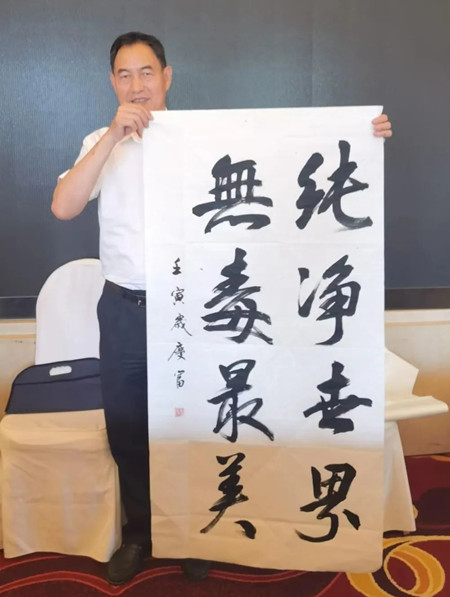 纯净世界
無毒最美
壬寅歲慶富